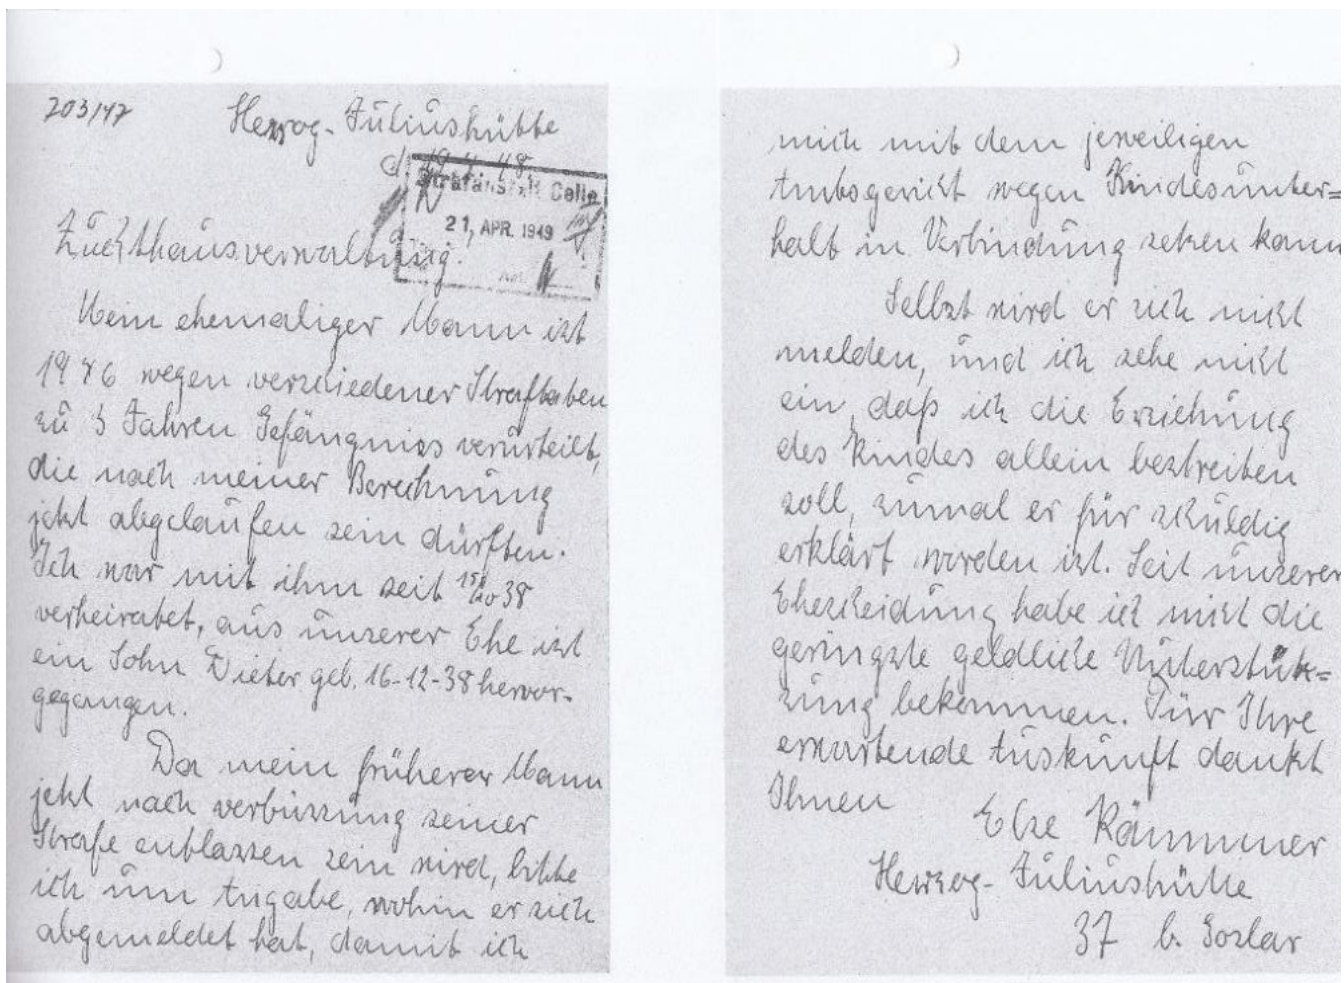 203/47
Herzog-Juliushütte
d. 19.4.48.
Strafanstalt Celle
21. APR. 1949
Zuchthausverwaltung.
Mein ehemaliger Mann ist
1946 wegen verschiedener Straftaten
zu 3 Jahren Gefängniss verurteilt,
die nach meiner Berechnung
jetzt abgelaufen sein dürften.
Ich war mit ihm seit 38
verheiratet, aus unserer Ehe ist
ein Sohn Dieter geb. 16-12-38 hervor-
gegangen.
Da mein früherer Mann
jetzt nach verbüssung seiner
Strafe entlassen sein wird, bitte
ich um Angabe, wohin er sich
abgemeldet hat, damit ich
mich mit dem jeweiligen
Amtsgericht wegen Kindesunter=
halt in Verbindung setzen kann
Selbst wird er sich nicht
melden, und ich sehe nicht
ein, daß ich die Erziehung
des Kindes allein bestreiten
soll, zumal er für schuldig
erklärt worden ist. Seit unserer
Ehescheidung habe ich nicht die
geringste geldliche Unterstüt=
zung bekommen. Für Ihre
erwartende Auskunft dankt
Ihnen
Else Kämmer
Herzog-Juliushütte
37 b. Goslar